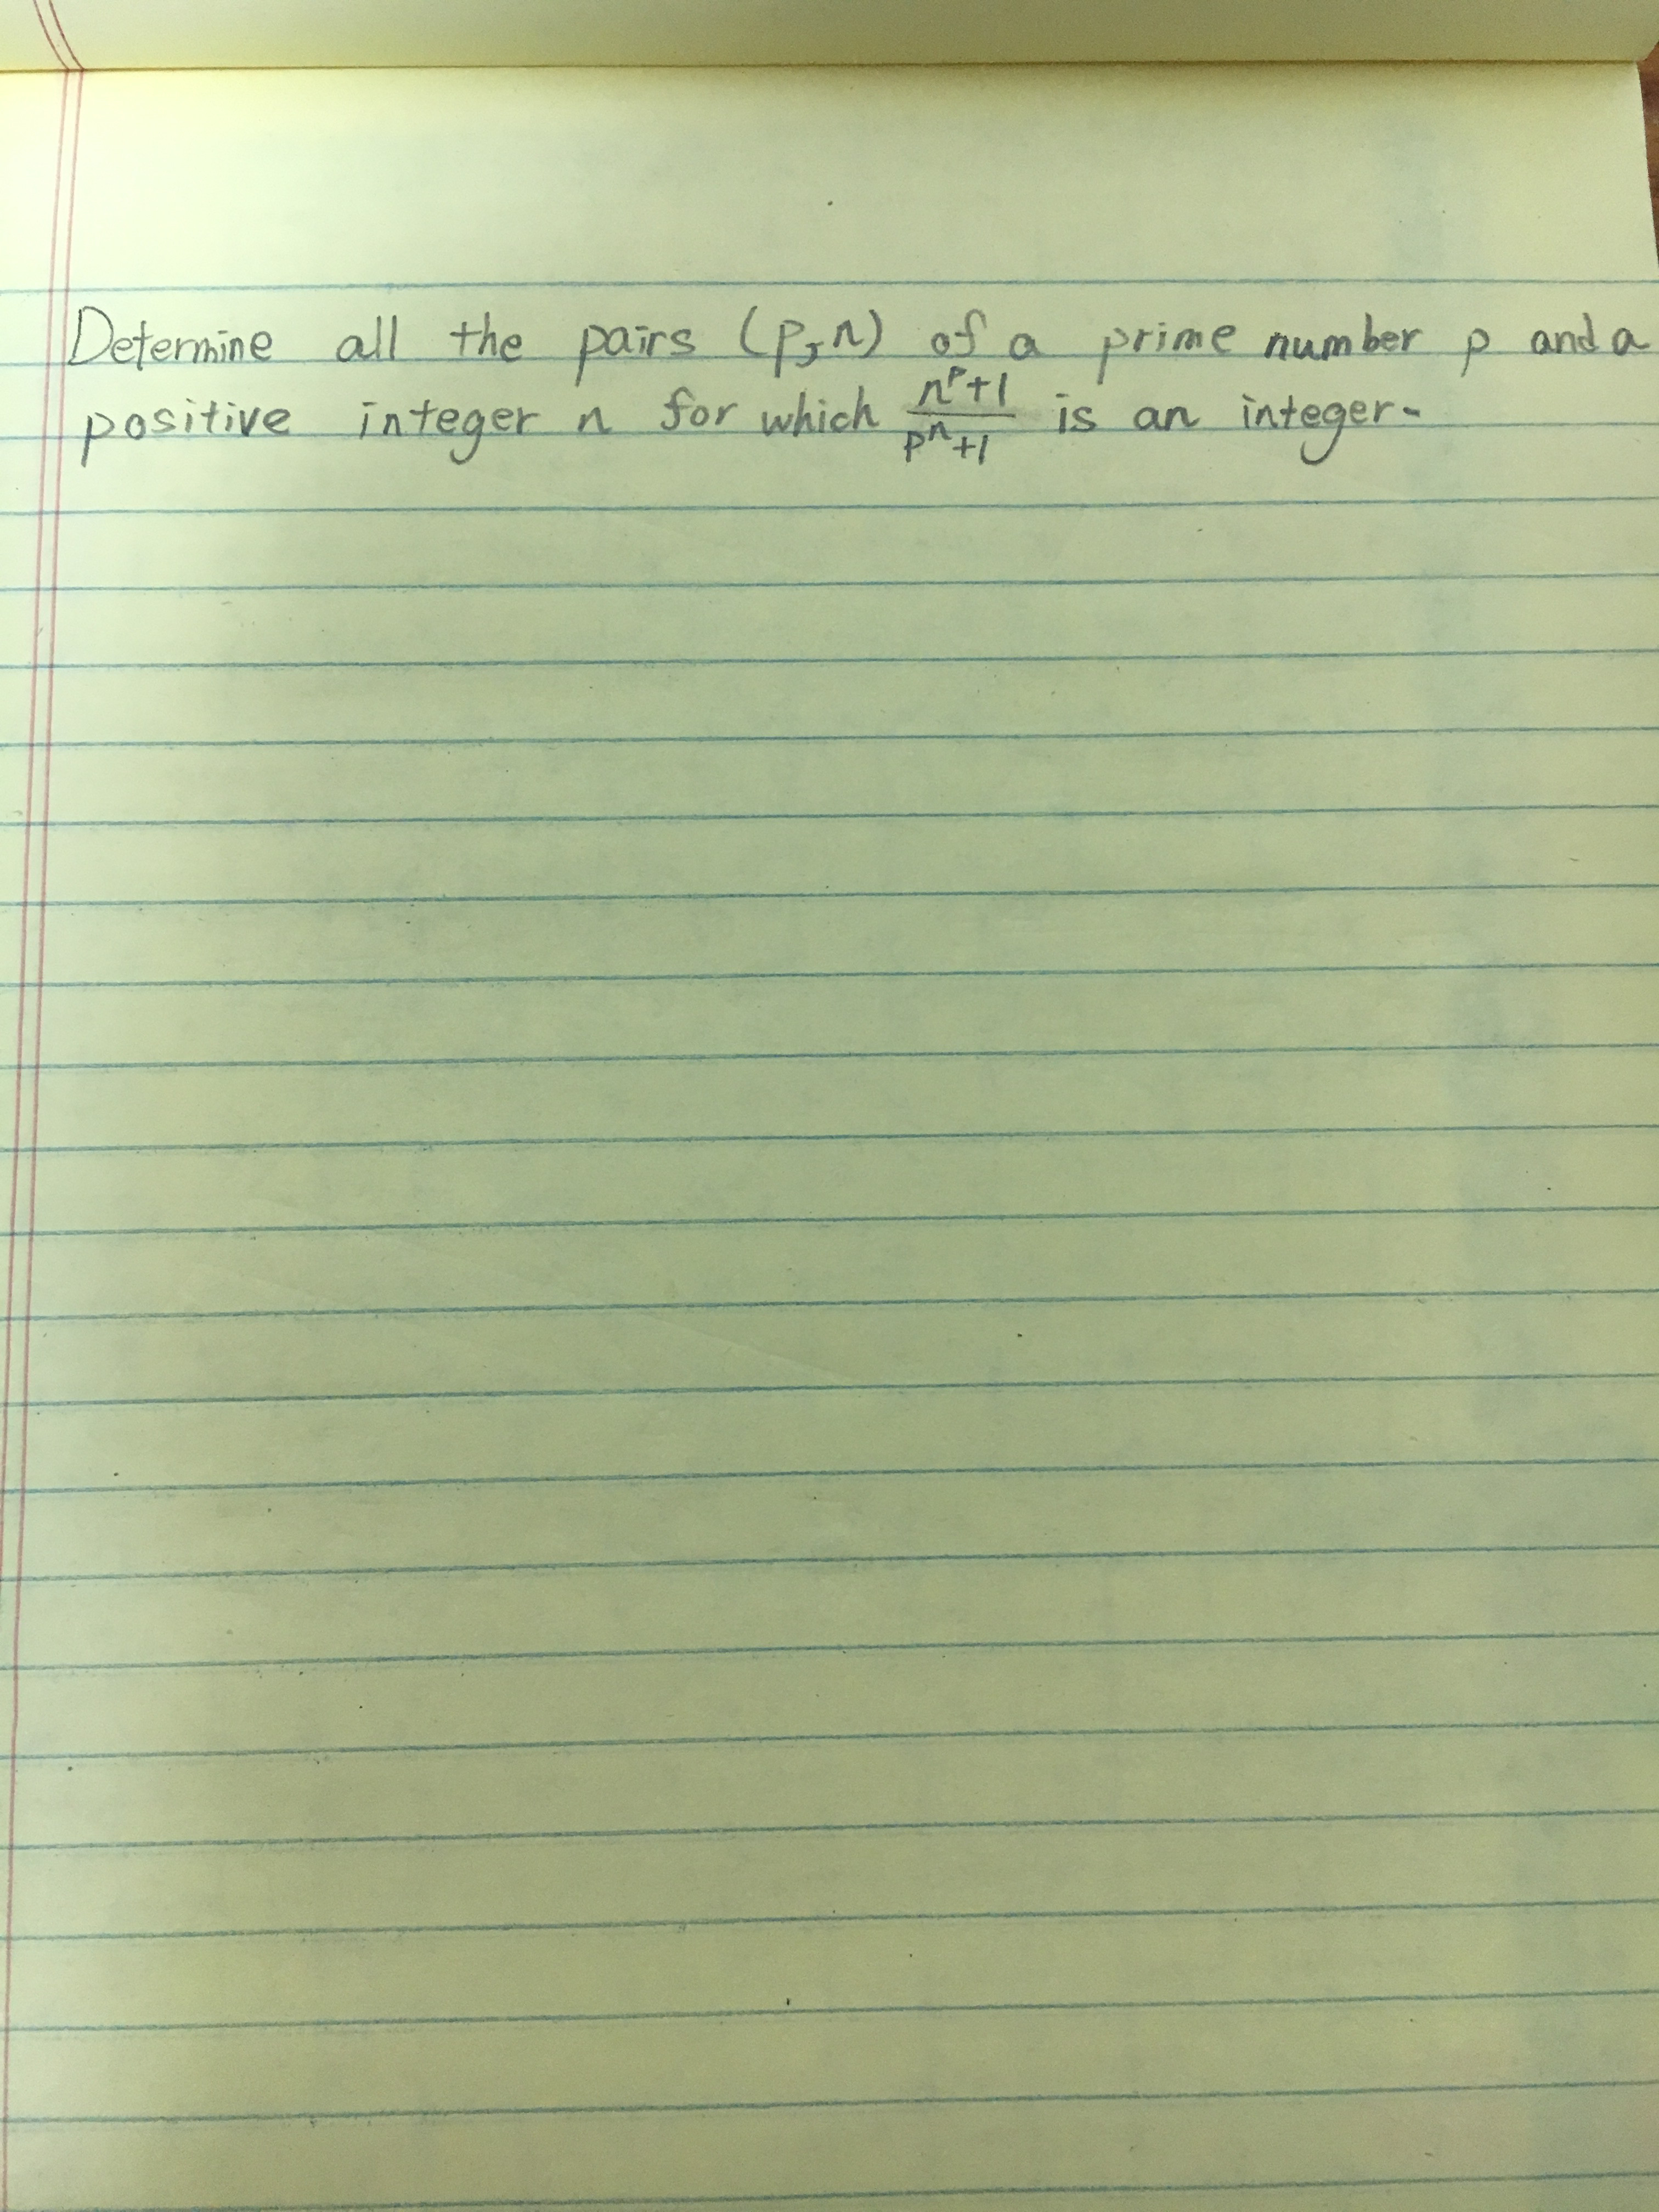 Determine all the pairs (p,n) of a prime number p and a
positive integer n for which \frac{n^p+1}{p^n+1} is an integer.